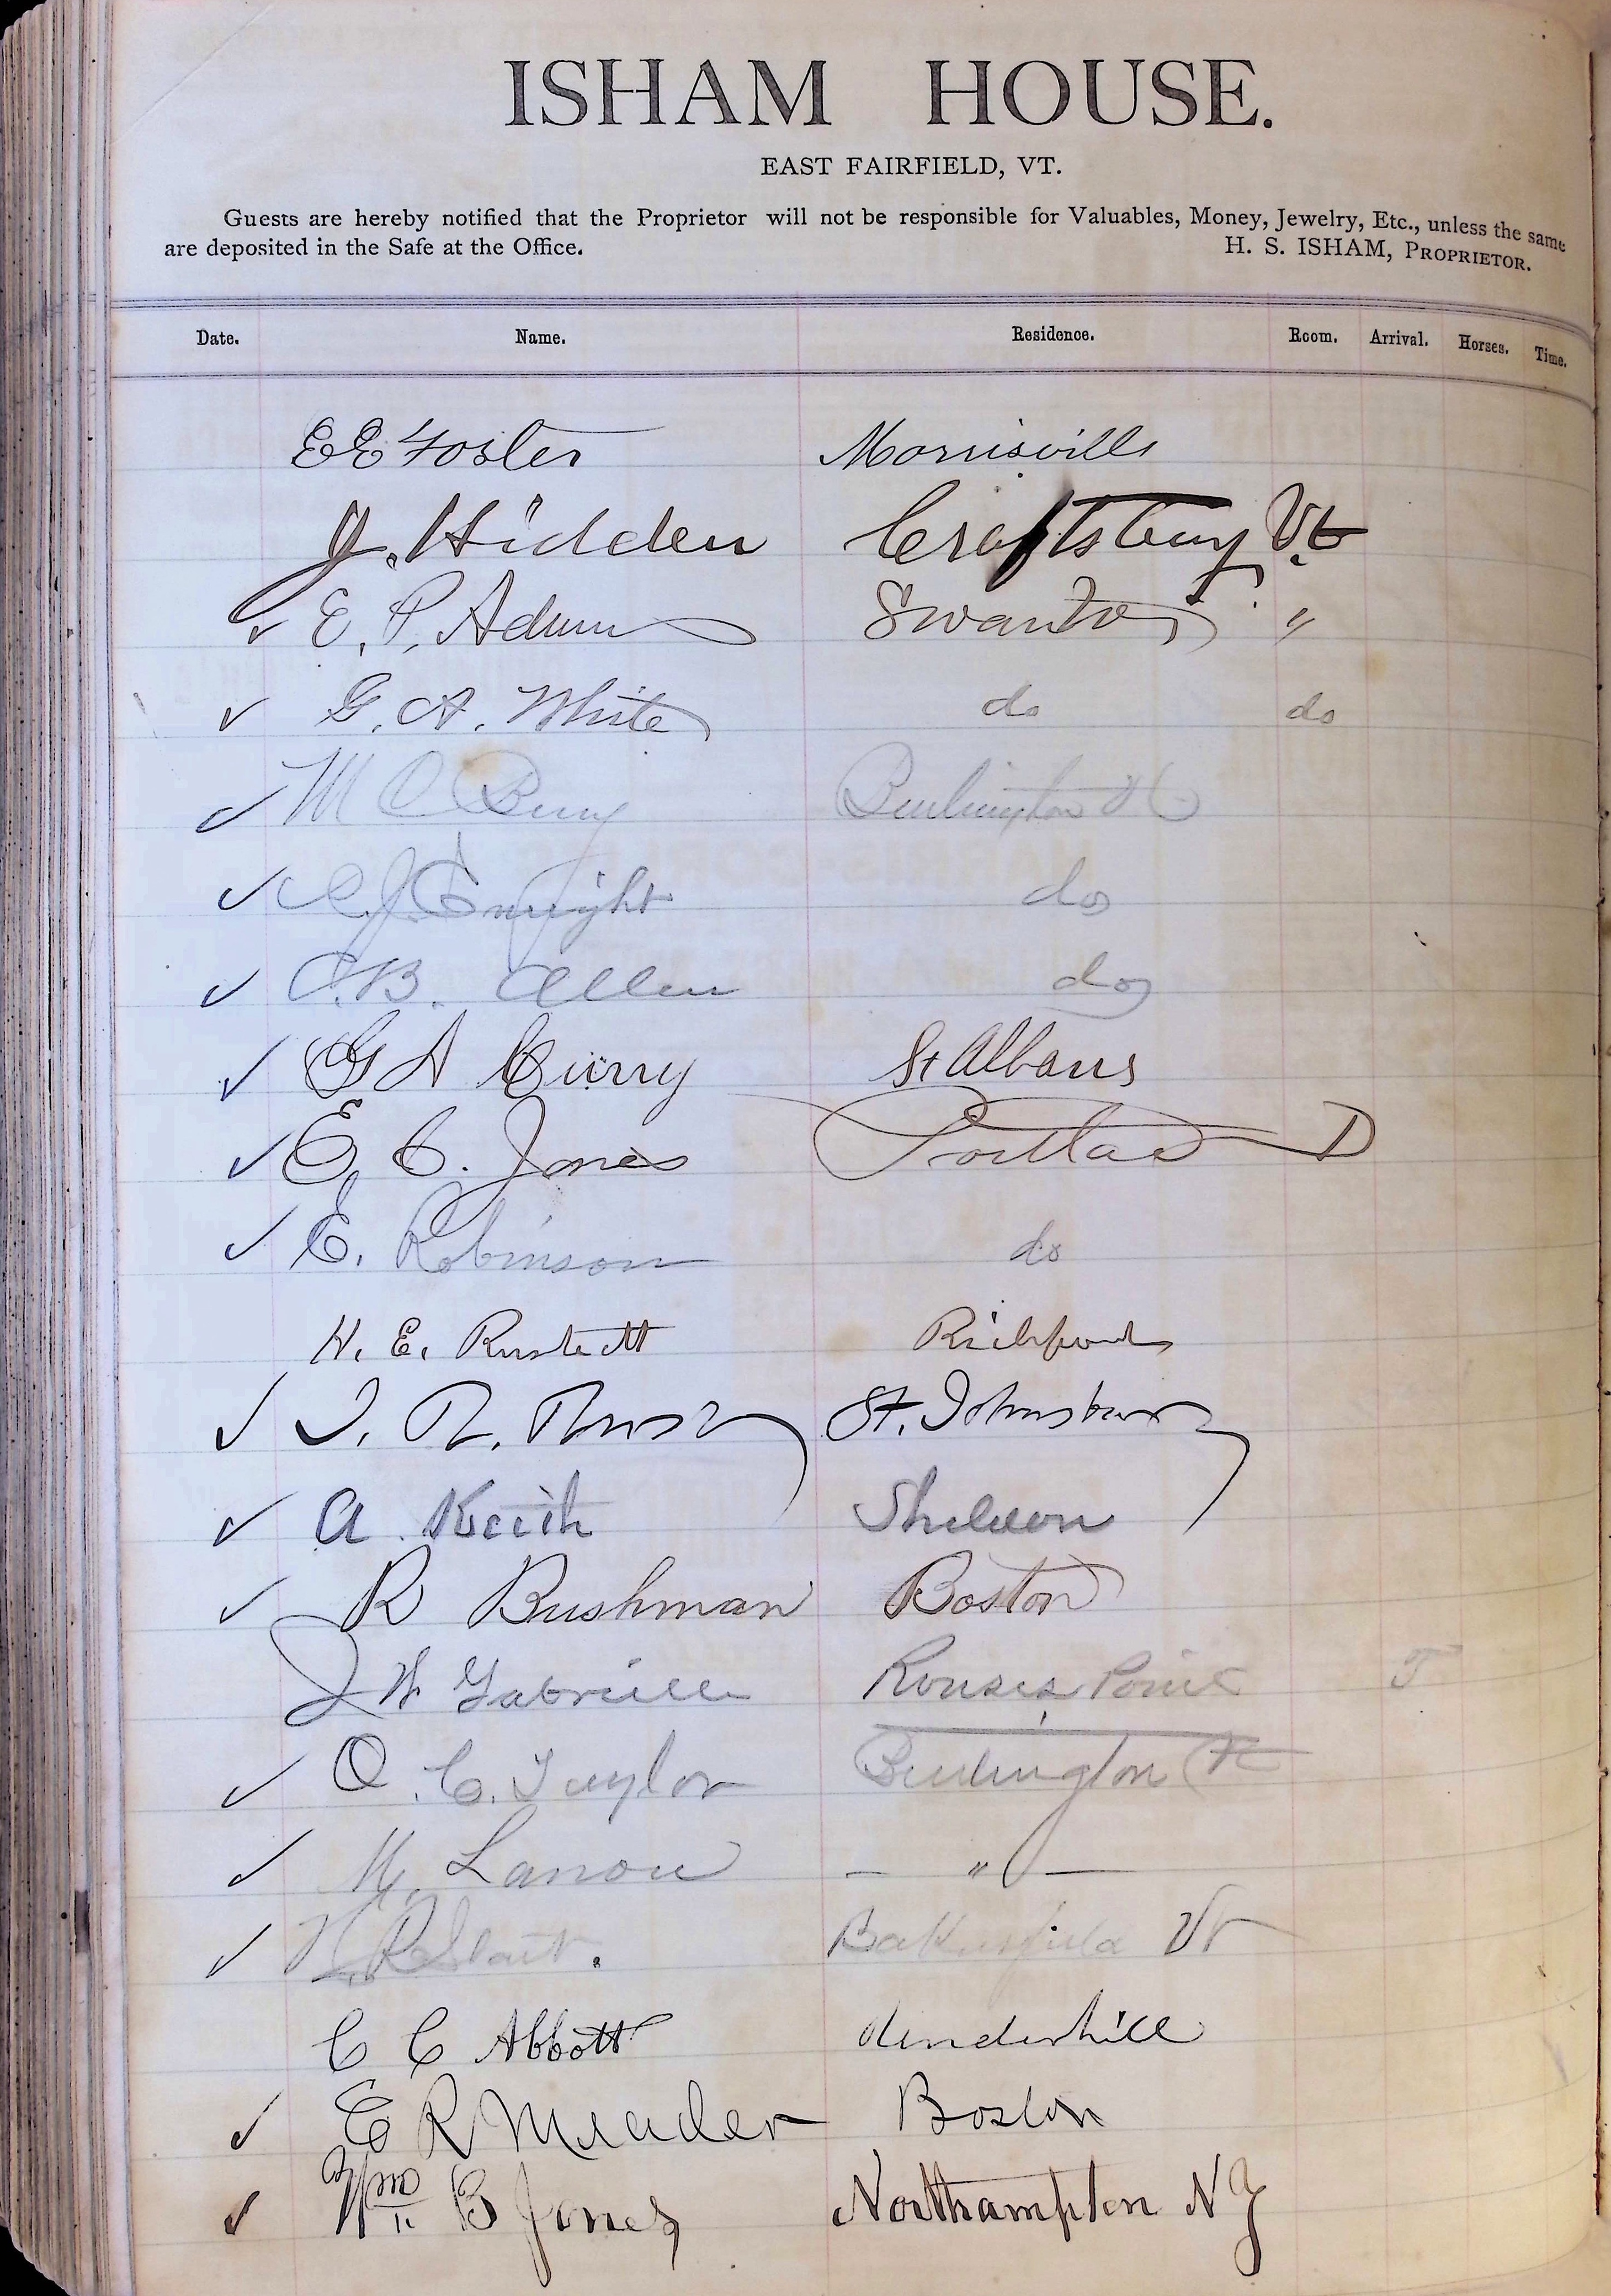 ISHAM HOUSE.
EAST FAIRFIELD, VT.
Guests are hereby notified that the Proprietor will not be responsible for Valuables, Money, Jewelry, Etc., unless the same
are deposited in the Safe at the Office. H. S. ISHAM, PROPRIETOR.
Date. Name. Residence. Room. Arrival. Horses. Time.
E E Foster Morrisville
J. Hidden Craftsbury Vt.
✓ E. P. Adams Swanton "
✓ G. A. White do do
✓ M C Berry Burlington Vt
✓ C. J. Enright do
✓ C. B. Allen do
✓ G A Curry St Albans
✓ E. C. Jones Portland
✓ E. Robinson do
H. E. Rustedt Richford
✓ St. Johnsbury
✓ A. Keith Sheldon
✓ R Bushman Boston
J W Gabrielle Rouses Point T
✓ O. C. Taylor Burlington Vt
✓ M. Lanou — " —
✓ Bakersfield Vt
C C Abbott Underhill
✓ E R Meader Boston
✓ Wm B Jones Northampton N J